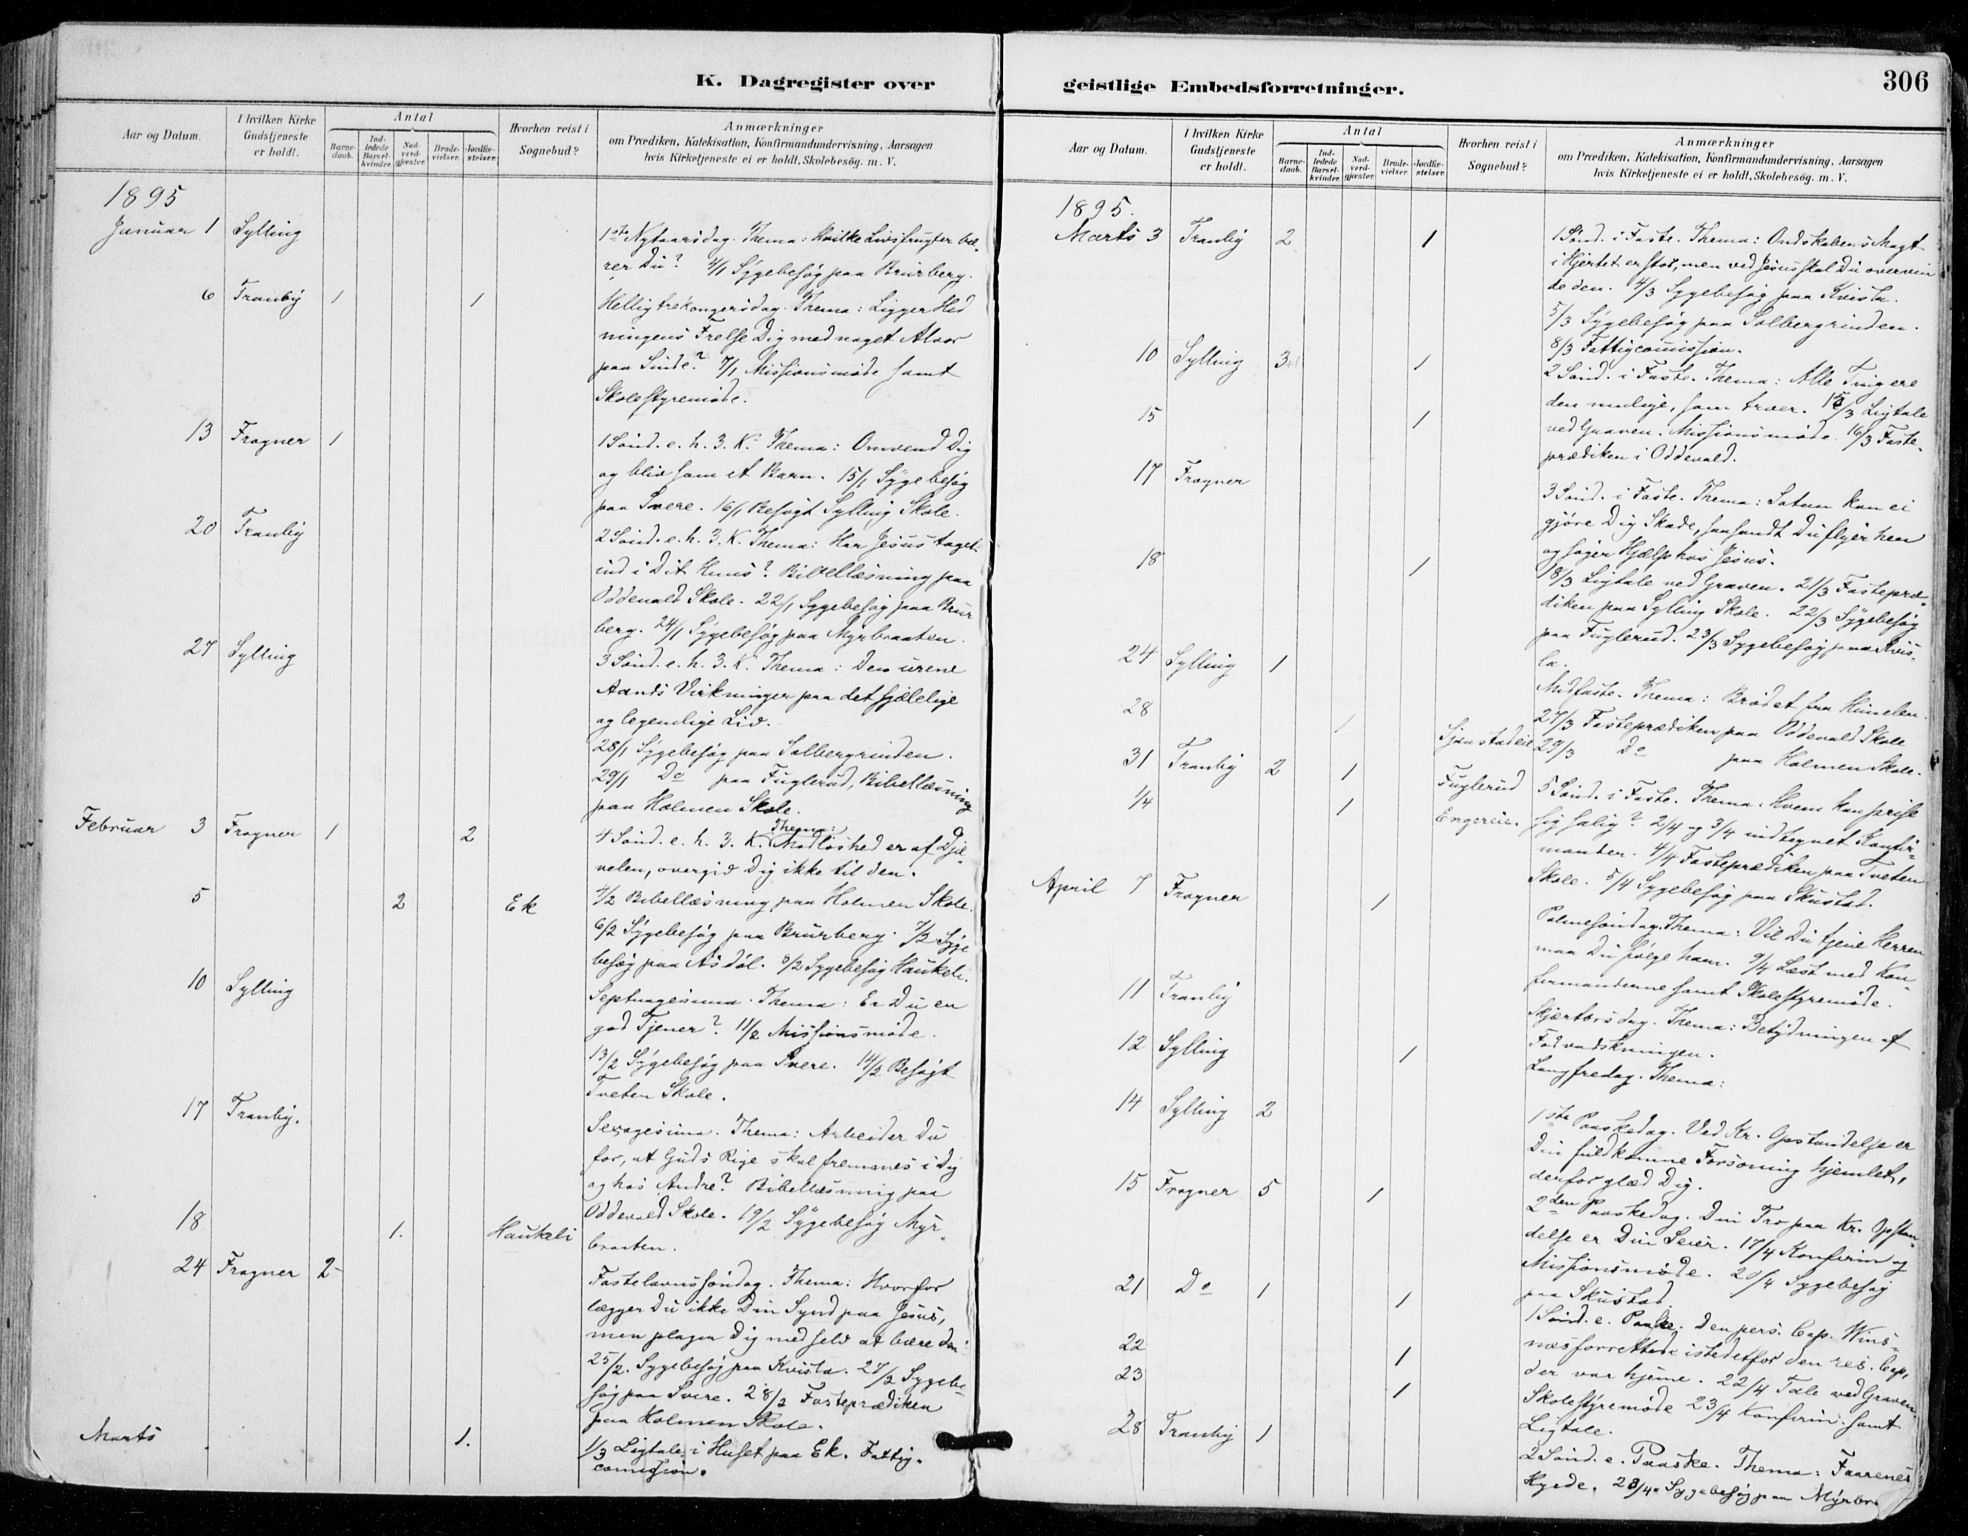 K. Dagregister over
Aar og Datum.
I hvilken Kirke Gudstjeneste er holdt.
Antal
Barnedaab.
Indledede Barselkvinder.
Nadverdgjester.
Brudevielser.
Jordfæstelser.
Hvorhen reist i Sognebud?
Anmærkninger
om Prædiken, Katekisation, Konfirmandundervisning, Aarsagen
hvis Kirketjeneste ei er holdt, Skolebesög. m. V.
1895
Januar 1 Sylling 1ste Nytaarsdag. Thema: Hvilke Livsfrugter bæ-
rer Du? 4/1 Sygebesøg paa Brurberg.
6 Tranby 1 1 Helligtrekongersdag. Thema: Ligger Hed
ningens Frelse Dig med noget Alvor
paa Sinde? 7/1 Missionsmøde samt
Skolestyremøde.
13 Frogner 1 1 Sønd. e. h. 3. K. Thema: Omvend Dig
og bliv som et Barn. 15/1 Sygebesøg
paa Svere. 16/1 Besøgt Sylling Skole.
20 Tranby 2 Sønd. e. h. 3. K. Thema: Har Jesus taget
ind i Dit Huus? Bibellæsning paa
Oddevald Skole. 22/1 Sygebesøg paa Brur
berg. 24/1 Sygebesøg paa Myrbraaten.
27 Sylling 3 Sønd. e. h. 3. K. Thema: Den urene
Aands Virkninger paa det sjælelige
og legemlige Liv.
28/1 Sygebesøg paa Solbergrinden.
29/1 Do paa Fuglerud, Bibellæsning
paa Holmen Skole.
Februar 3 Frogner 1 2 4 Sønd. e. h. 3. K. Thema: Modløshed er af Djæ-
velen, overgiv Dig ikke til den.
5 2 Ek 4/2 Bibellæsning paa Holmen Skole.
6/2 Sygebesøg paa Brurberg. 7/2 Syge
besøg paa Asdøl. 8/2 Sygebesøg Haukeli.
10 Sylling Septuagesima. Thema: Er Du en
god Tjener? 11/2 Missionsmøde.
13/2 Sygebesøg paa Svere. 14/2 Besøgt
Tveten Skole.
17 Tranby. Sexagesima. Thema: Arbeider Du
for, at Guds Rige skal fremmes i Dig
og hos Andre? Bibellæsning paa
Oddevald Skole. 19/2 Sygebesøg Myr-
braaten.
18 1. Haukeli
24 Frogner 2 Fastelavnssøndag. Thema: Hvorfor
lægger Du ikke Din Synd paa Jesus,
men plager Dig med selv at bære den
25/2. Sygebesøg paa Kvista. 27/2 Sygebe-
søg paa Svere. 28/2 Fasteprædiken
paa Holmen Skole.
Marts 1. 1/3 Ligtale i Huset paa Ek. Fattig-
comission.
geistlige Embedsforretninger.
306
Aar og Datum.
I hvilken Kirke Gudstjeneste er holdt.
Antal
Barnedaab.
Indledede Barselkvinder.
Nadverdgjester.
Brudevielser.
Jordfæstelser.
Hvorhen reist i Sognebud?
Anmærkninger
om Prædiken, Katekisation, Konfirmandundervisning, Aarsagen
hvis Kirketjeneste ei er holdt, Skolebesög. m. V.
1895.
Marts 3 Tranby 2 1 1 Sønd. i Faste. Thema: Ondskabens Magt
i Hjertet er stor, men ved Jesus skal Du overvin
de den. 4/3 Sygebesøg paa Kvista.
5/3 Sygebesøg paa Solbergrinden.
8/3 Fattigcomission.
10 Sylling 3 1 2 Sønd. i Faste. Thema: Alle Ting ere
den mulige, som troer. 15/3 Ligtale
15 1 ved Graven. Missionsmøde. 16/3 Faste-
prædiken i Oddevald.
17 Frogner 3 Sønd. i Faste. Thema: Satan kan ei
gjøre Dig Skade, saasandt Du flyer hen
og søger Hjælp hos Jesus.
18 1 18/3 Ligtale ved Graven. 21/3 Fastepræ-
diken paa Sylling Skole. 22/3 Sygebesøg
paa Fuglerud. 23/3 Sygebesøg paa Kvis-
ta.
24 Sylling 1 Midfaste. Thema: Brødet fra Himelen.
28 1 Sjøastadeie 27/3 Fasteprædiken paa Oddevald Skole
29/3 Do paa Holmen Skole.
31 Tranby 2 1 Fuglerud 5 Sønd. i Faste. Thema: Hvem kan prise
1/4 1 Engereie. sig salig? 2/4 og 3/4 indtegnet Konfir-
manter. 4/4 Fasteprædiken paa Tveten
Skole. 5/4 Sygebesøg paa Skustad.
April 7 Frogner 1 Palmesøndag. Thema: Vil Du tjene Herren
maa Du følge ham. 9/4 Læst med Kon-
firmanderne samt Skolestyremøde.
11 Tranby Skjærtorsdag. Thema: Betydningen af
Fodvadskningen.
12 Sylling 1 Langfredag. Thema:
14 Sylling 2 1ste Paaskedag. Ved Kr. Opstandelse er
Din fuldkomne Forsoning hjemlet,
derfor glæd Dig.
15 Frogner 5 1 2den Paaskedag. Din Tro paa Kr. Opstan-
delse er Din Seier. 17/4 Konfirm og
Missionsmøde. 20/4 Sygebesøg
paa Skustad
21 Do 1 1 1 Sønd. e. Paaske. Den pers. Cap. Wins-
næs forrettede istedetfor den res. Cap,
22 1 der var hjeme. 22/4 Tale ved Graven.
23 1 Skolestyremøde 23/4 Konfirm. samt
Ligtale.
28 Tranby 1 2 Sønd. e. Paaske. Thema: Faarenes
Hyrde. 23/4. Sygebesøg paa Myrbr